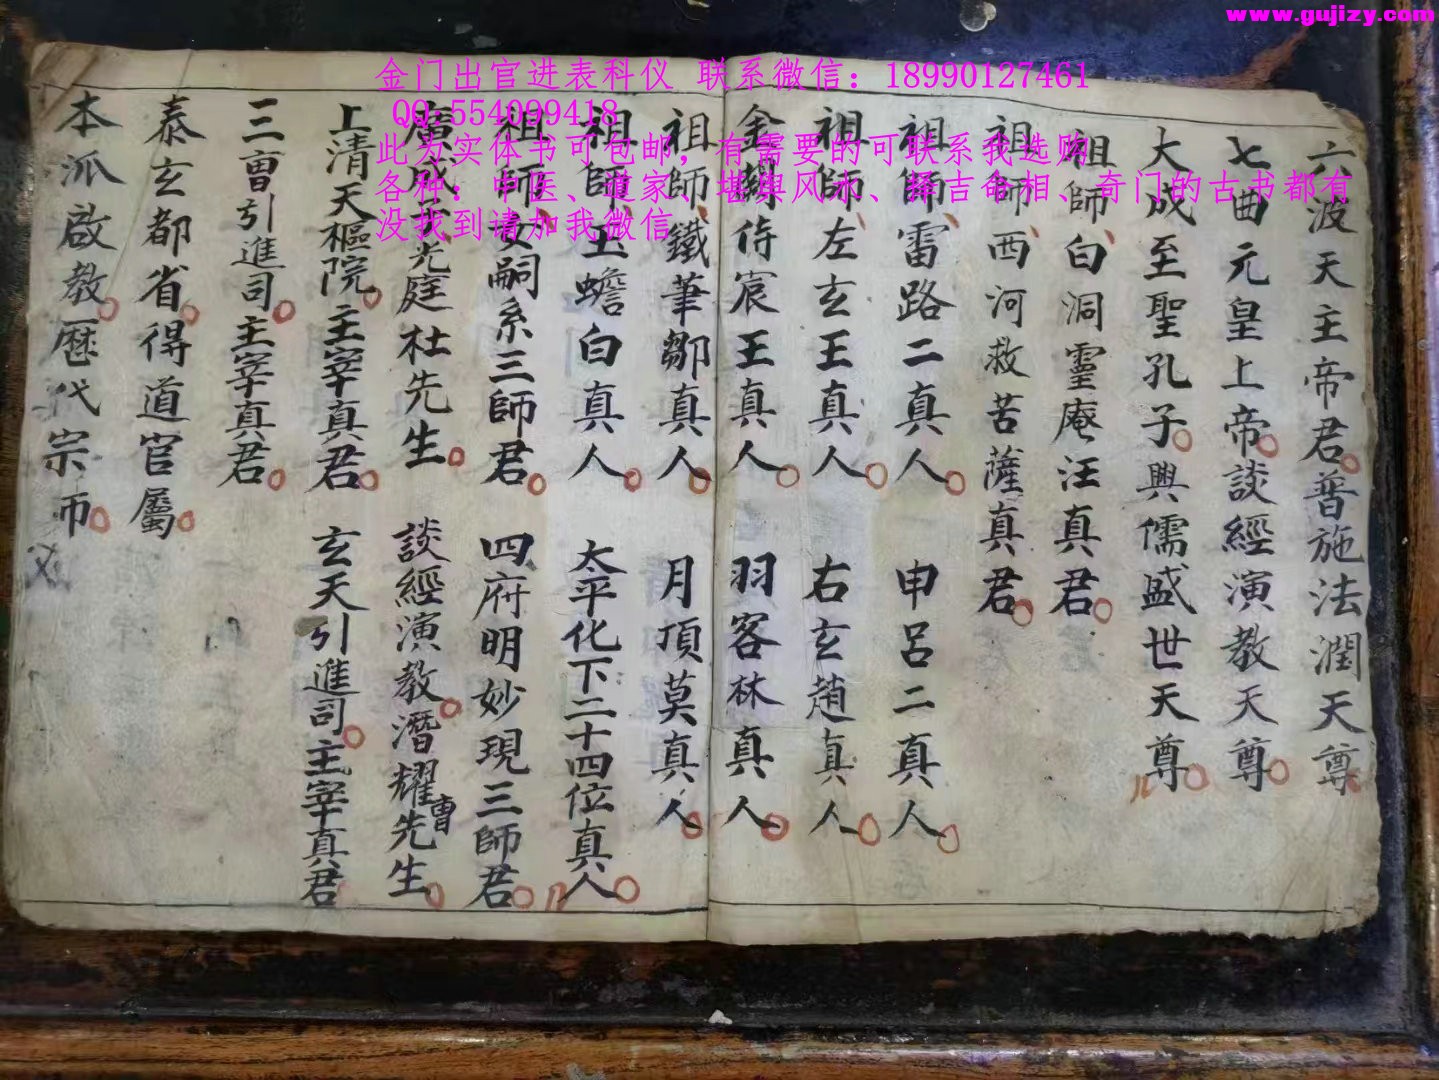 www.gujizy.com
金门出官进表科仪 联系微信：18990127461
QQ:554099418
此为实体书可包邮，有需要的可联系我选购
各种：中医、道家、堪舆风水、择吉命相、奇门的古书都有
没找到请加我微信
六波天主帝君普施法潤天尊
七曲元皇上帝談經演教天尊
大成至聖孔子興儒盛世天尊
祖師白洞靈庵汪真君
祖師西河救苦薩真君
祖師雷路二真人 申呂二真人
祖師左玄王真人 右玄趙真人
金闕侍宸王真人 羽客林真人
祖師鐵筆鄒真人 月頂莫真人
祖師玉蟾白真人 太平化下二十四位真人
祖師女嗣系三師君 四府明妙現三師君
廣成光庭杜先生 談經演教潛耀曹先生
上清天樞院主宰真君 玄天引進司主宰真君
三曹引進司主宰真君
泰玄都省得道官屬
本派啟教歷代宗師